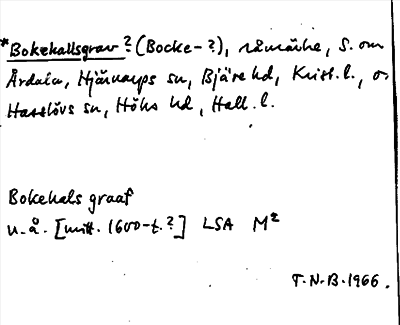 *Bokehallsgrav? (Bocke-?), råmärke, S. om
Årdala, Hjärnarps sn, Bjäre hd, Krist. l., o.
Hasslövs sn, Höks hd, Hall. l.
Bokehals graaf
u.å. [mitt. 1600-t.?] LSA M²
T.N.B. 1966.